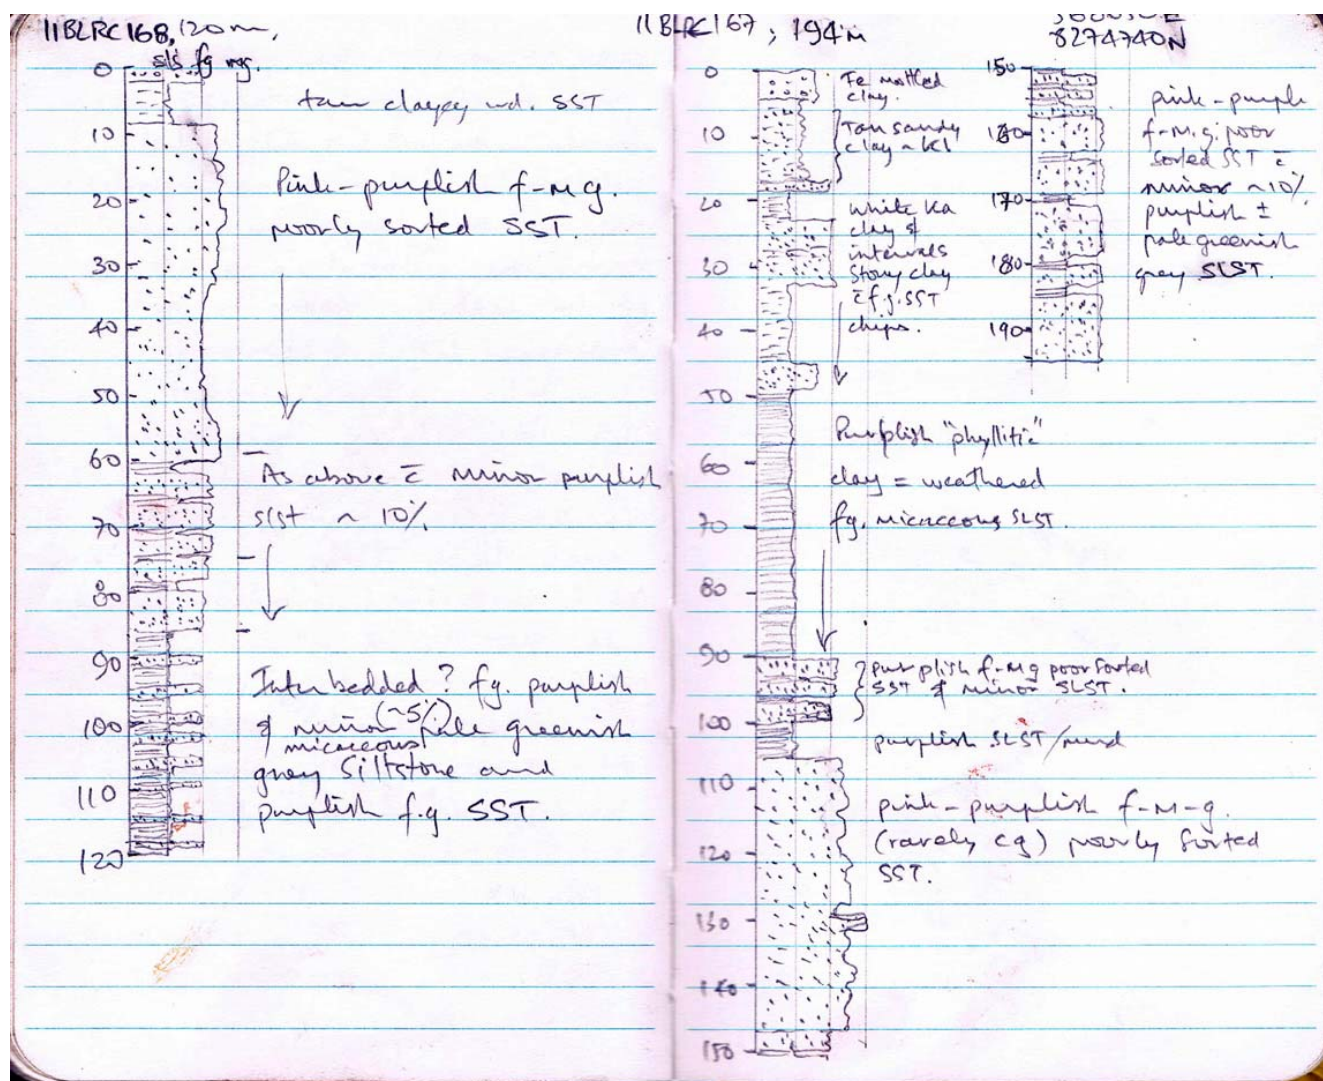 11BLRC168, 120m,
sls fg mg.
0
10
20
30
40
50
60
70
80
90
100
110
120
tan clayey wd. SST
Pink-purplish f-mg.
poorly sorted SST.
As above c̄ minor purplish
slst ~ 10%
Interbedded? fg. purplish
& minor (~5%) pale greenish
micaceous
grey siltstone and
purplish f.g. SST.
11BLRC167, 194m
8274740N
0
10
20
30
40
50
60
70
80
90
100
110
120
130
140
150
Fe mottled
clay.
Tan sandy
clay
white Ka
clay &
intervals
stony clay
c̄ f.g. SST
chips.
Purplish "phyllitic"
clay = weathered
fg. micaceous SLST.
purplish f-mg poor sorted
SST & minor SLST.
purplish SLST/mud
pink-purplish f-m-g.
(rarely cg) poorly sorted
SST.
150
160
170
180
190
pink-purple
f-m.g. poor
sorted SST c̄
minor ~10%
purplish ±
pale greenish
grey SLST.